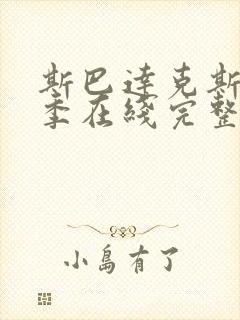 斯巴达克斯
季在线完整
小岛有了